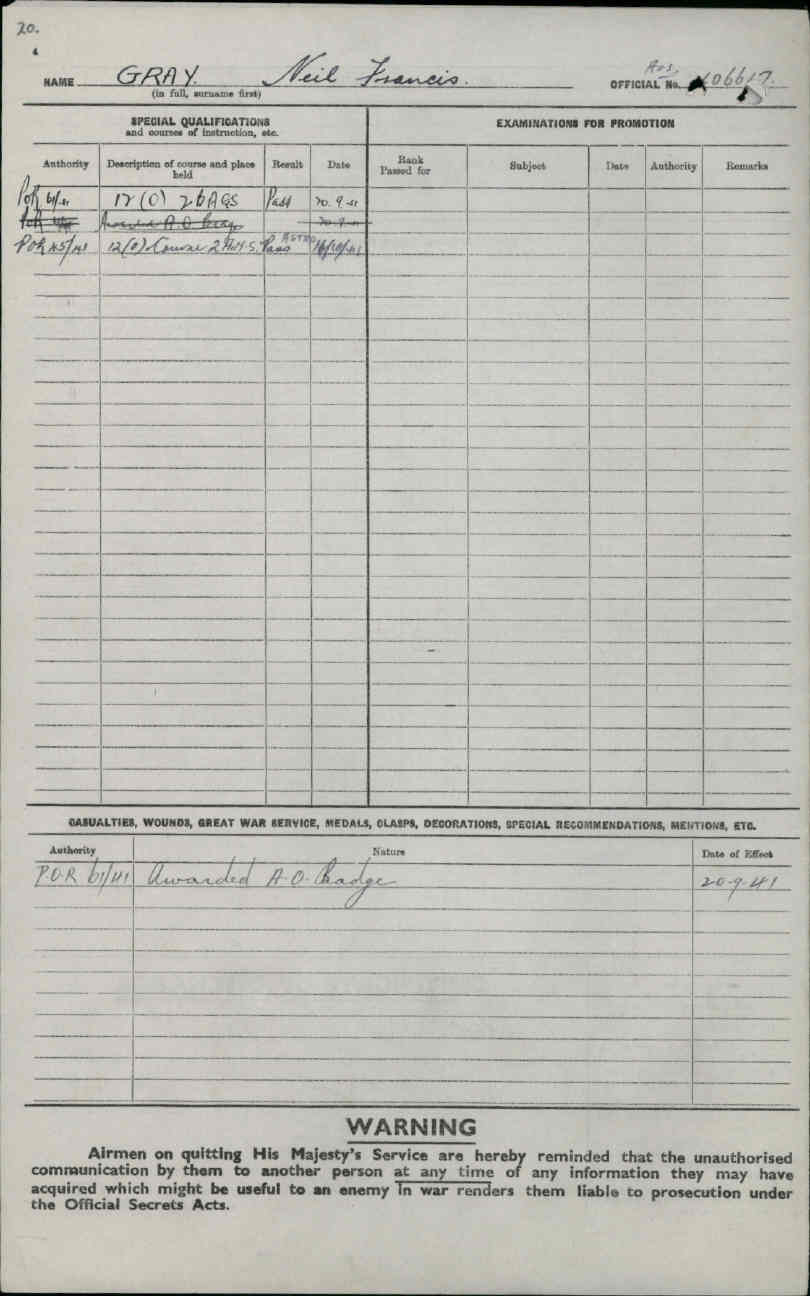 20.
NAME GRAY. Neil Francis. OFFICIAL No. Aus. 406617.
(in full, surname first)
SPECIAL QUALIFICATIONS
and courses of instruction, etc.
EXAMINATIONS FOR PROMOTION
Authority Description of course and place held Result Date Rank Passed for Subject Date Authority Remarks
POR 61/41 12 (O) 2 BAGS Pass 20.9.41
Awarded A.O. Badge 20.9.41
POR 45/41 12(O) Course 2 A.N.S. Pass ASTRO 16/10/41
CASUALTIES, WOUNDS, GREAT WAR SERVICE, MEDALS, CLASPS, DECORATIONS, SPECIAL RECOMMENDATIONS, MENTIONS, ETC.
Authority Nature Date of Effect
P.O.R 61/41 Awarded A.O. Badge 20-9-41
WARNING
Airmen on quitting His Majesty's Service are hereby reminded that the unauthorised
communication by them to another person at any time of any information they may have
acquired which might be useful to an enemy in war renders them liable to prosecution under
the Official Secrets Acts.